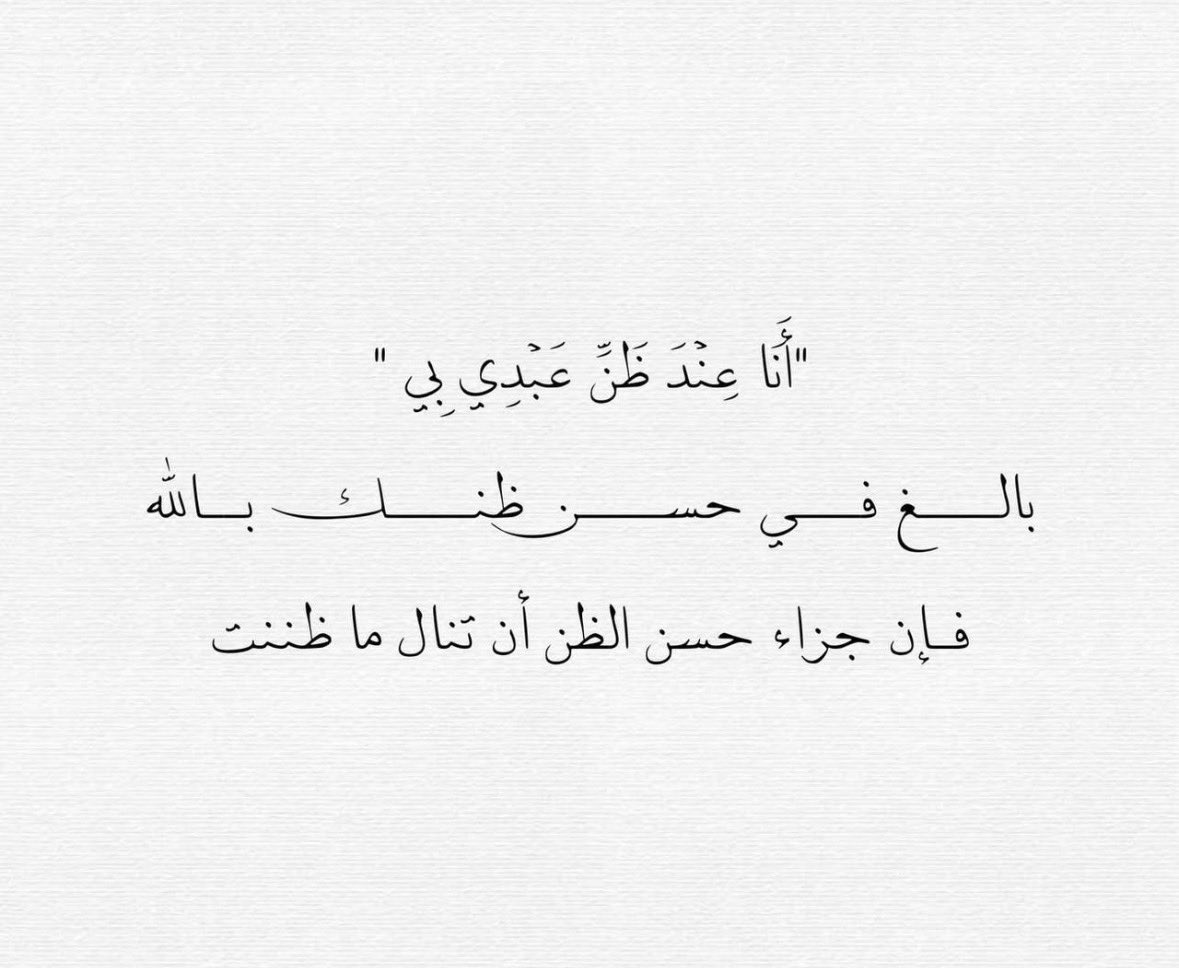 "أَنَا عِنْدَ ظَنِّ عَبْدِي بِي "
بالـــغ فـــي حســـن ظنـــك بـــالله
فـإن جزاء حسن الظن أن تنال ما ظننت